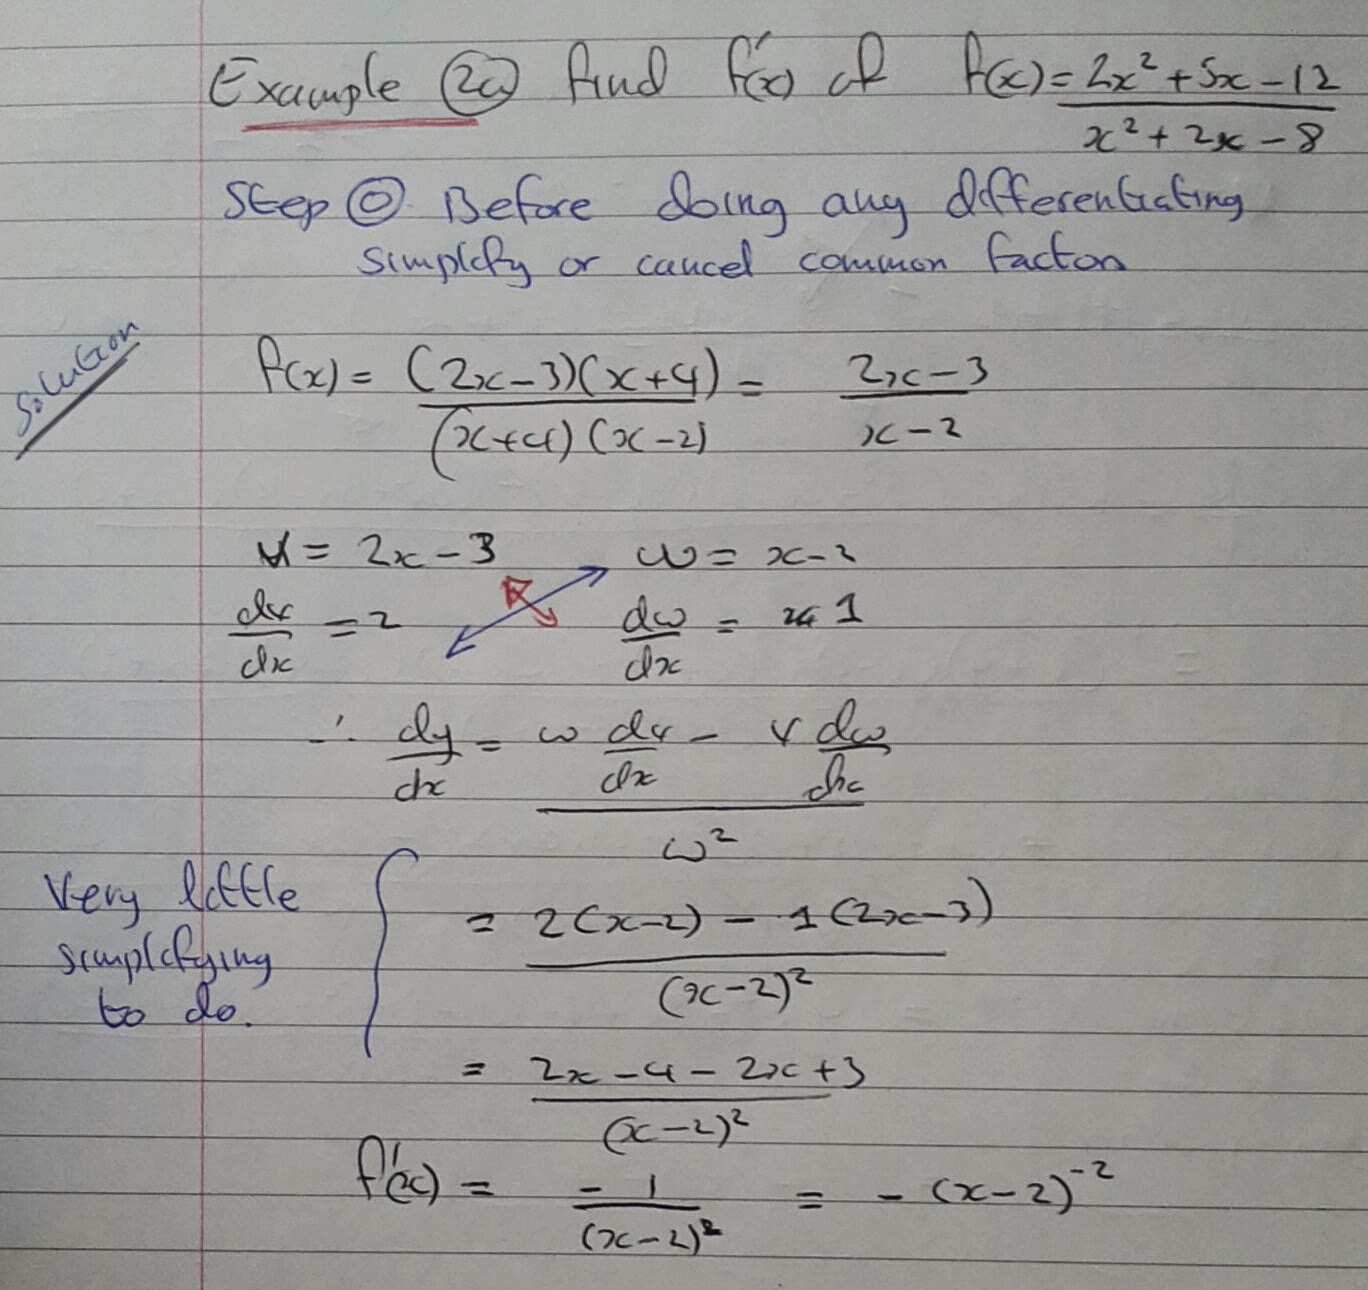 Example 2a find f'(x) of f(x) = 2x² + 5x - 12
x² + 2x - 8
Step 0 Before doing any differentiating
simplify or cancel common factors
Solution
f(x) = (2x-3)(x+4) = 2x-3
(x+4)(x-2) x-2
v = 2x-3 w = x-2
dv = 2 dw = 1
dx dx
∴ dy = w dv - v dw
dx dx dx
w²
Very little
simplifying
to do.
= 2(x-2) - 1(2x-3)
(x-2)²
= 2x-4-2x+3
(x-2)²
f'(x) = -1 = -(x-2)⁻²
(x-2)²